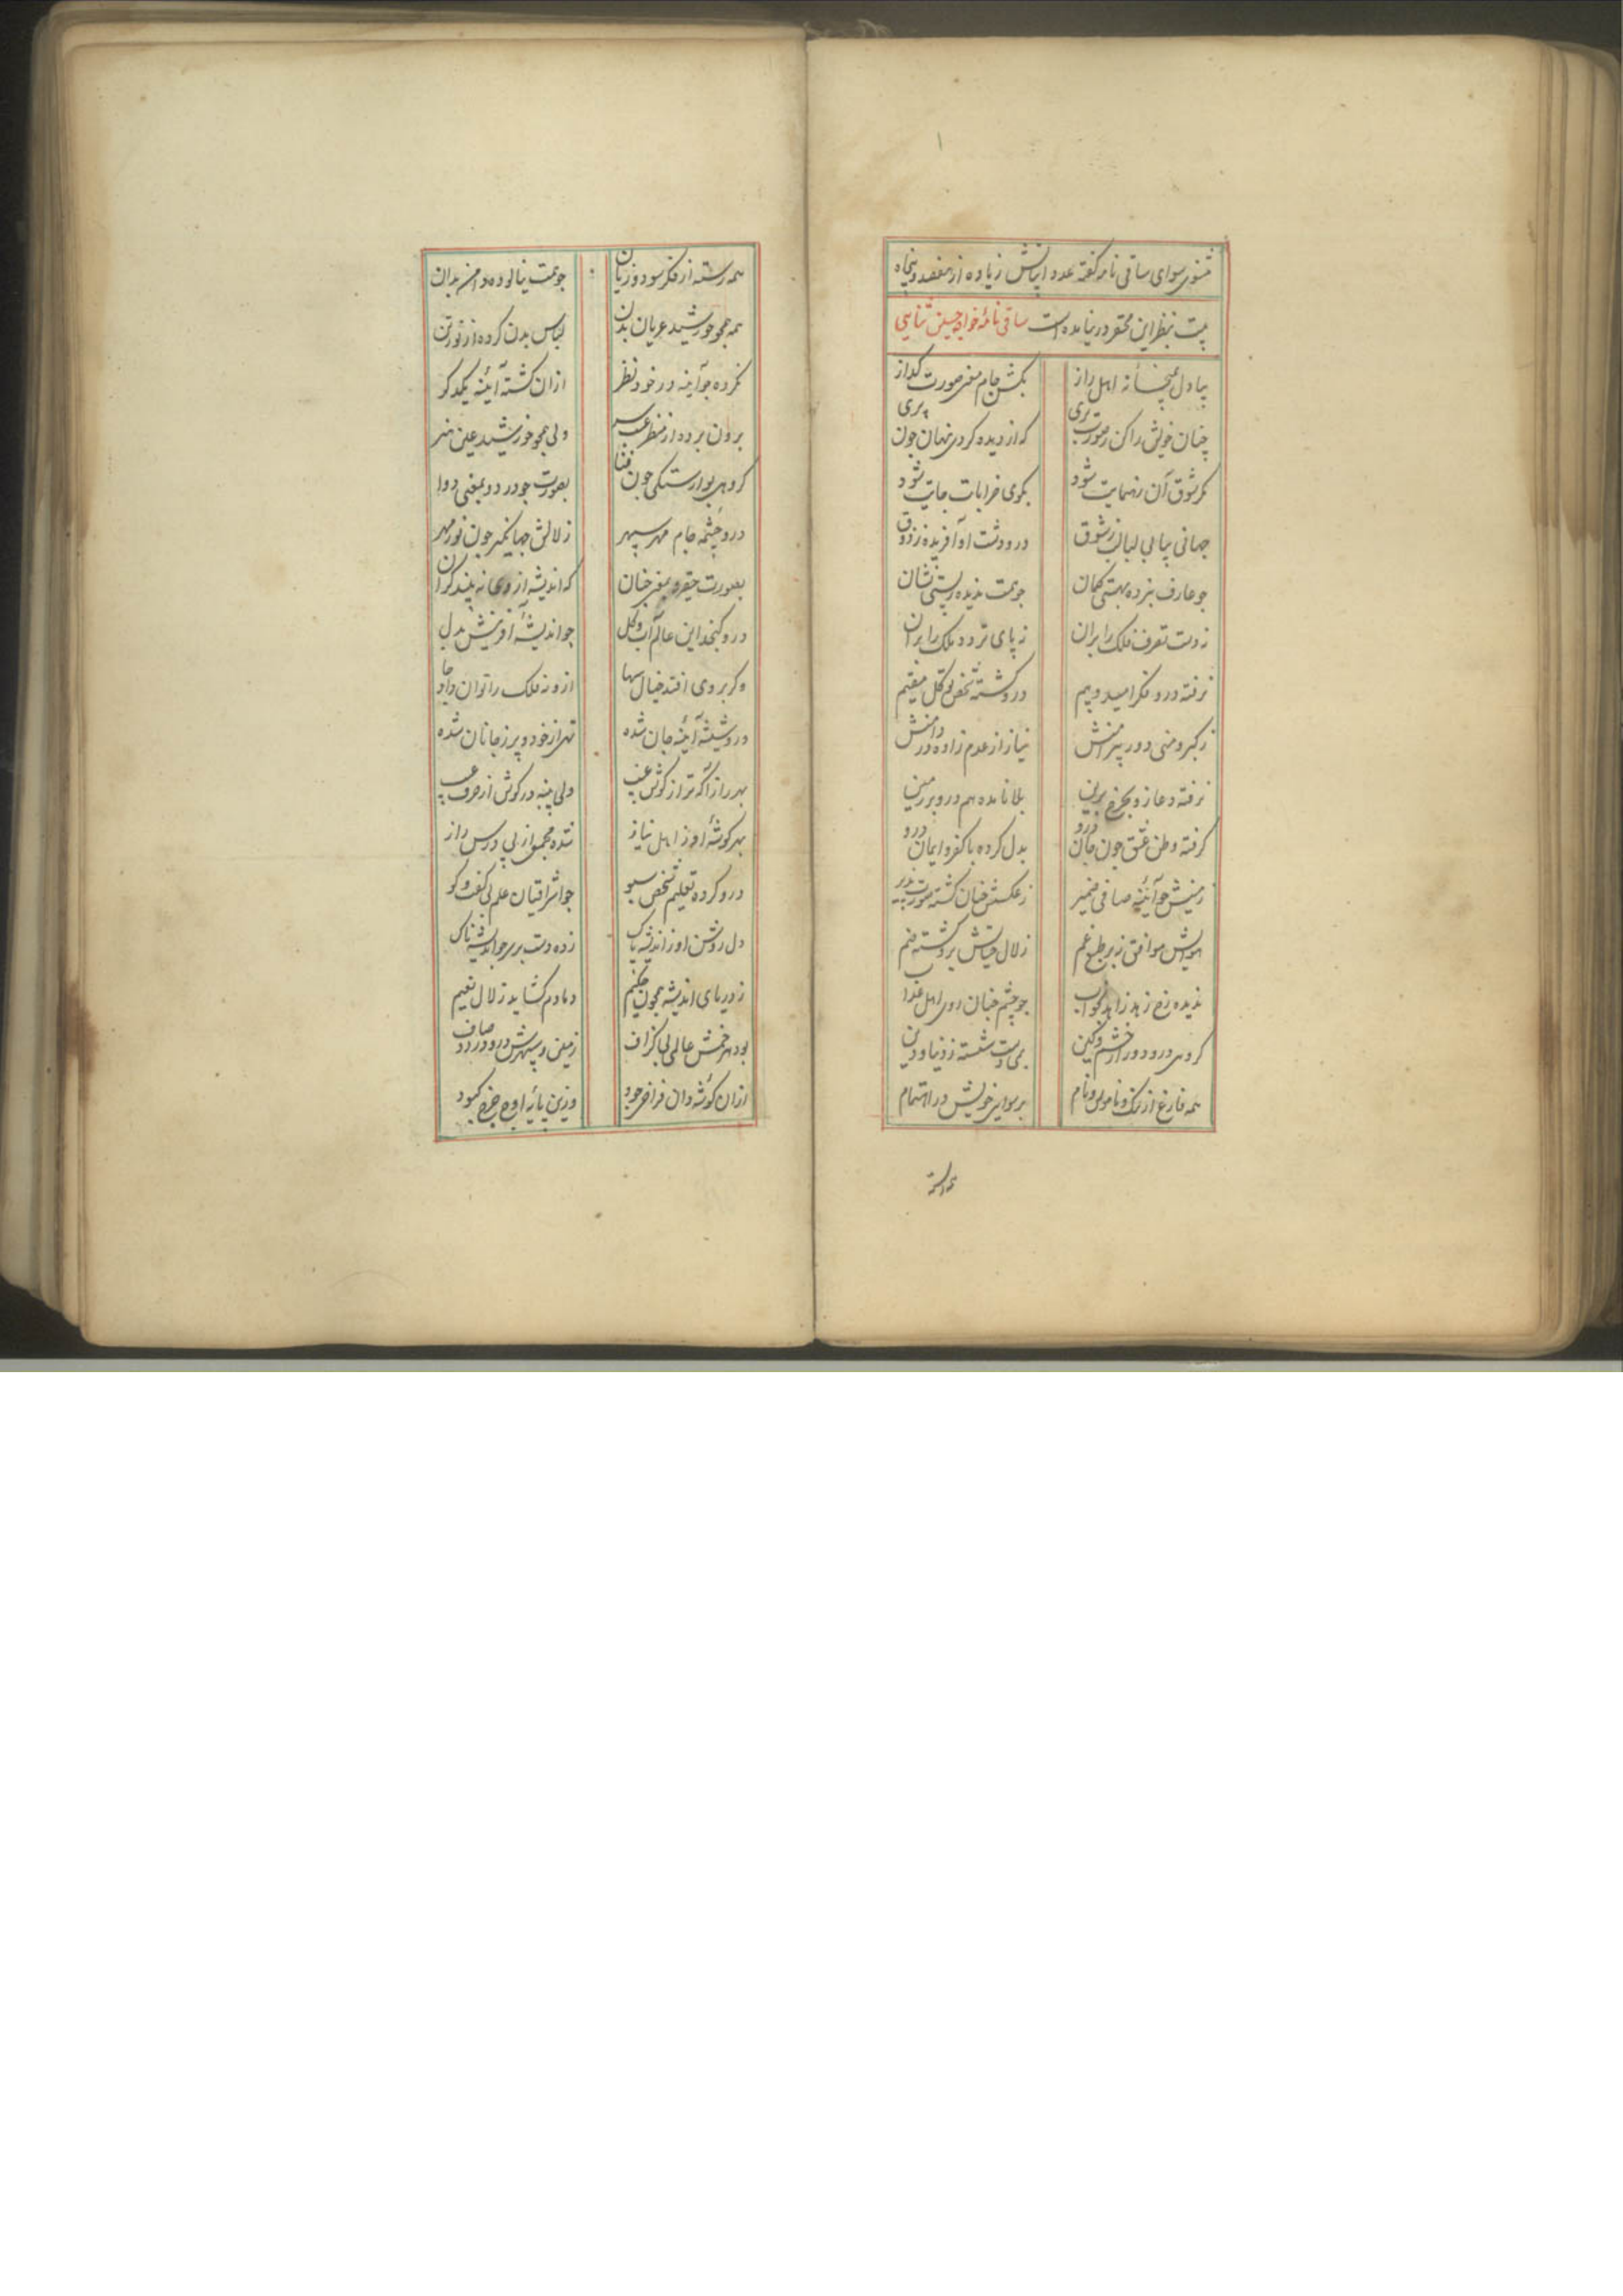 مثنوی سوای ساقی نامه گفته عدد ابیاتش زیاده از هفصد و پنجاه
بیت بنظر این محقر در نیامده است ساقی نامهٔ خواجه حسین ثنایی
بیا دل بمیخانهٔ اهل راز بکش جام معنی صورت گداز
چنان خویش را کن ز صورت بری که از دیده کردی نهان چون پری
کر شوق آن رهنمایت شود بکوی خرابات جایت شود
جهانی بیابی لبالب ز شوق در و دشت او آفریده ز ذوق
چو عارف نبرده بهستی کمان چو همت ندیده ز پستی نشان
ز دست تصرف فلک را بر آن ز پای تردد ملک را بر آن
نرفته درو فکر امید و بیم درو کشته شخص توکل مقیم
ز کبر و منی دور پیرامنش نیاز از عدم زاده در دامنش
نرفته دعا زو بچرخ برین بلا نامده هم درو بر زمین
گرفته وطن عشق چون جان درو بدل کرده با کفر و ایمان درو
زمینش چو آیینه صافی ضمیر ز عکسش چنان کشته صورت پذیر
هوایش موافق نه بر طبع غم زلال حیاتش برو کشته سم
ندیده رخ زهد زاهد بخواب چو چشم جنان روی اهل عذاب
گروهی درو دور از خشم و کین بمی دست شسته ز دنیا و دین
همه فارغ از ننک و ناموس و نام برسوایی خویش در اهتمام
همه رسته
همه رسته از فکر سود و زیان چو همت نیالوده دامن بدان
همه همچو خورشید عریان بدن لباس بدن کرده از نور تن
نکرده چو آینه در خود نظر ازان کشته آیینه یکدکر
برون برده از منظر عیب سر ولی همچو خورشید عین هنر
گروهی بوارستکی چون فنا بصورت چو درد و بمعنی دوا
درو چشمه جام مهر سپهر زلالش جهانگیر چون نور مهر
بصورت حقیر و بمعنی چنان که اندیشه از وی نه بیند کران
درو کنجد این عالم آب و کل چو اندیشهٔ آفرینش بدل
و کر بر وی افتد خیال سها ازو نه فلک را توان داد جا
درو شیشه آینهٔ جان شده تهی از خود و پر ز جانان شده
بهر راز آکه تر از کوش غیب ولی پنبه در کوش از حرف عیب
بهر کوشهٔ او ز اهل نیاز شده مجمعی از پی درس راز
درو کرده تعلیم شخص سبو چو اشراقیان علم بی کفت و کو
دل روشن او ز اندیشه پاک زده دست بر سر چو اندیشه ناک
ز دریای اندیشه همچون حکیم دمادم کشاید زلال نعیم
بود هر خمش عالمی بی کزاف زمین و سپهرش درو درد و صاف
ازان کوشه دان فراخی جود وزین پایهٔ اوج چرخ کبود